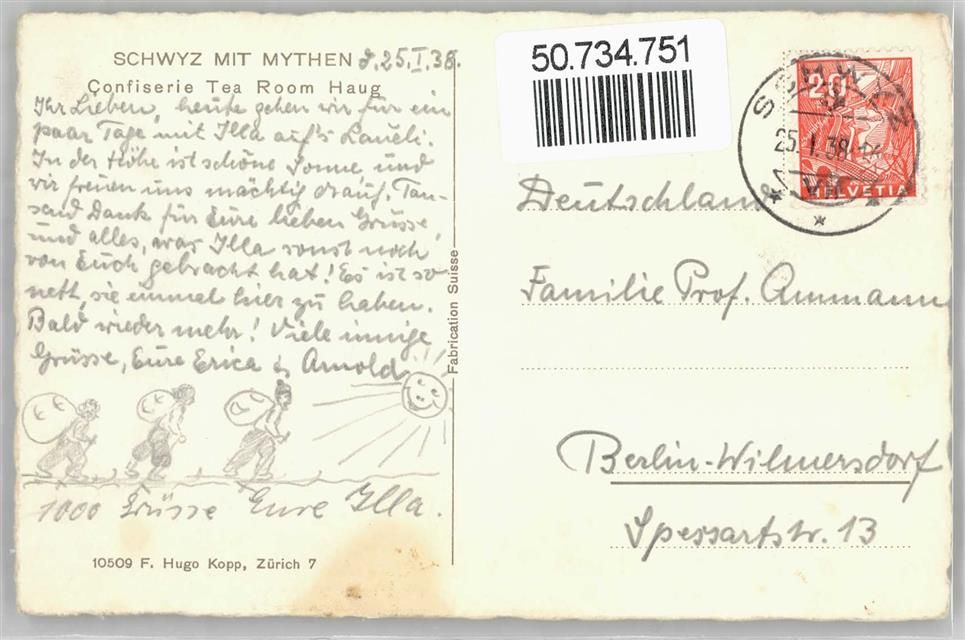 SCHWYZ MIT MYTHEN
d. 25.I.38.
Confiserie Tea Room Haug
Ihr Lieben, heute gehen wir für ein
paar Tage mit Illa auf's Laueli.
In der Höhe ist schöne Sonne, und
wir freuen uns mächtig drauf. Tau-
send Dank für Eure lieben Grüsse,
und alles, was Illa sonst noch
von Euch gebracht hat! Es ist so
nett, sie einmal hier zu haben.
Bald wieder mehr! Viele innige
Grüsse, Eure Erica & Arnold
1000 Grüsse Eure Illa.
10509 F. Hugo Kopp, Zürich 7
Fabrication Suisse
50.734.751
SCHWYZ
25.I.38
20
HELVETIA
Deutschland
Familie Prof. Ammann
Berlin-Wilmersdorf
Spessartstr. 13